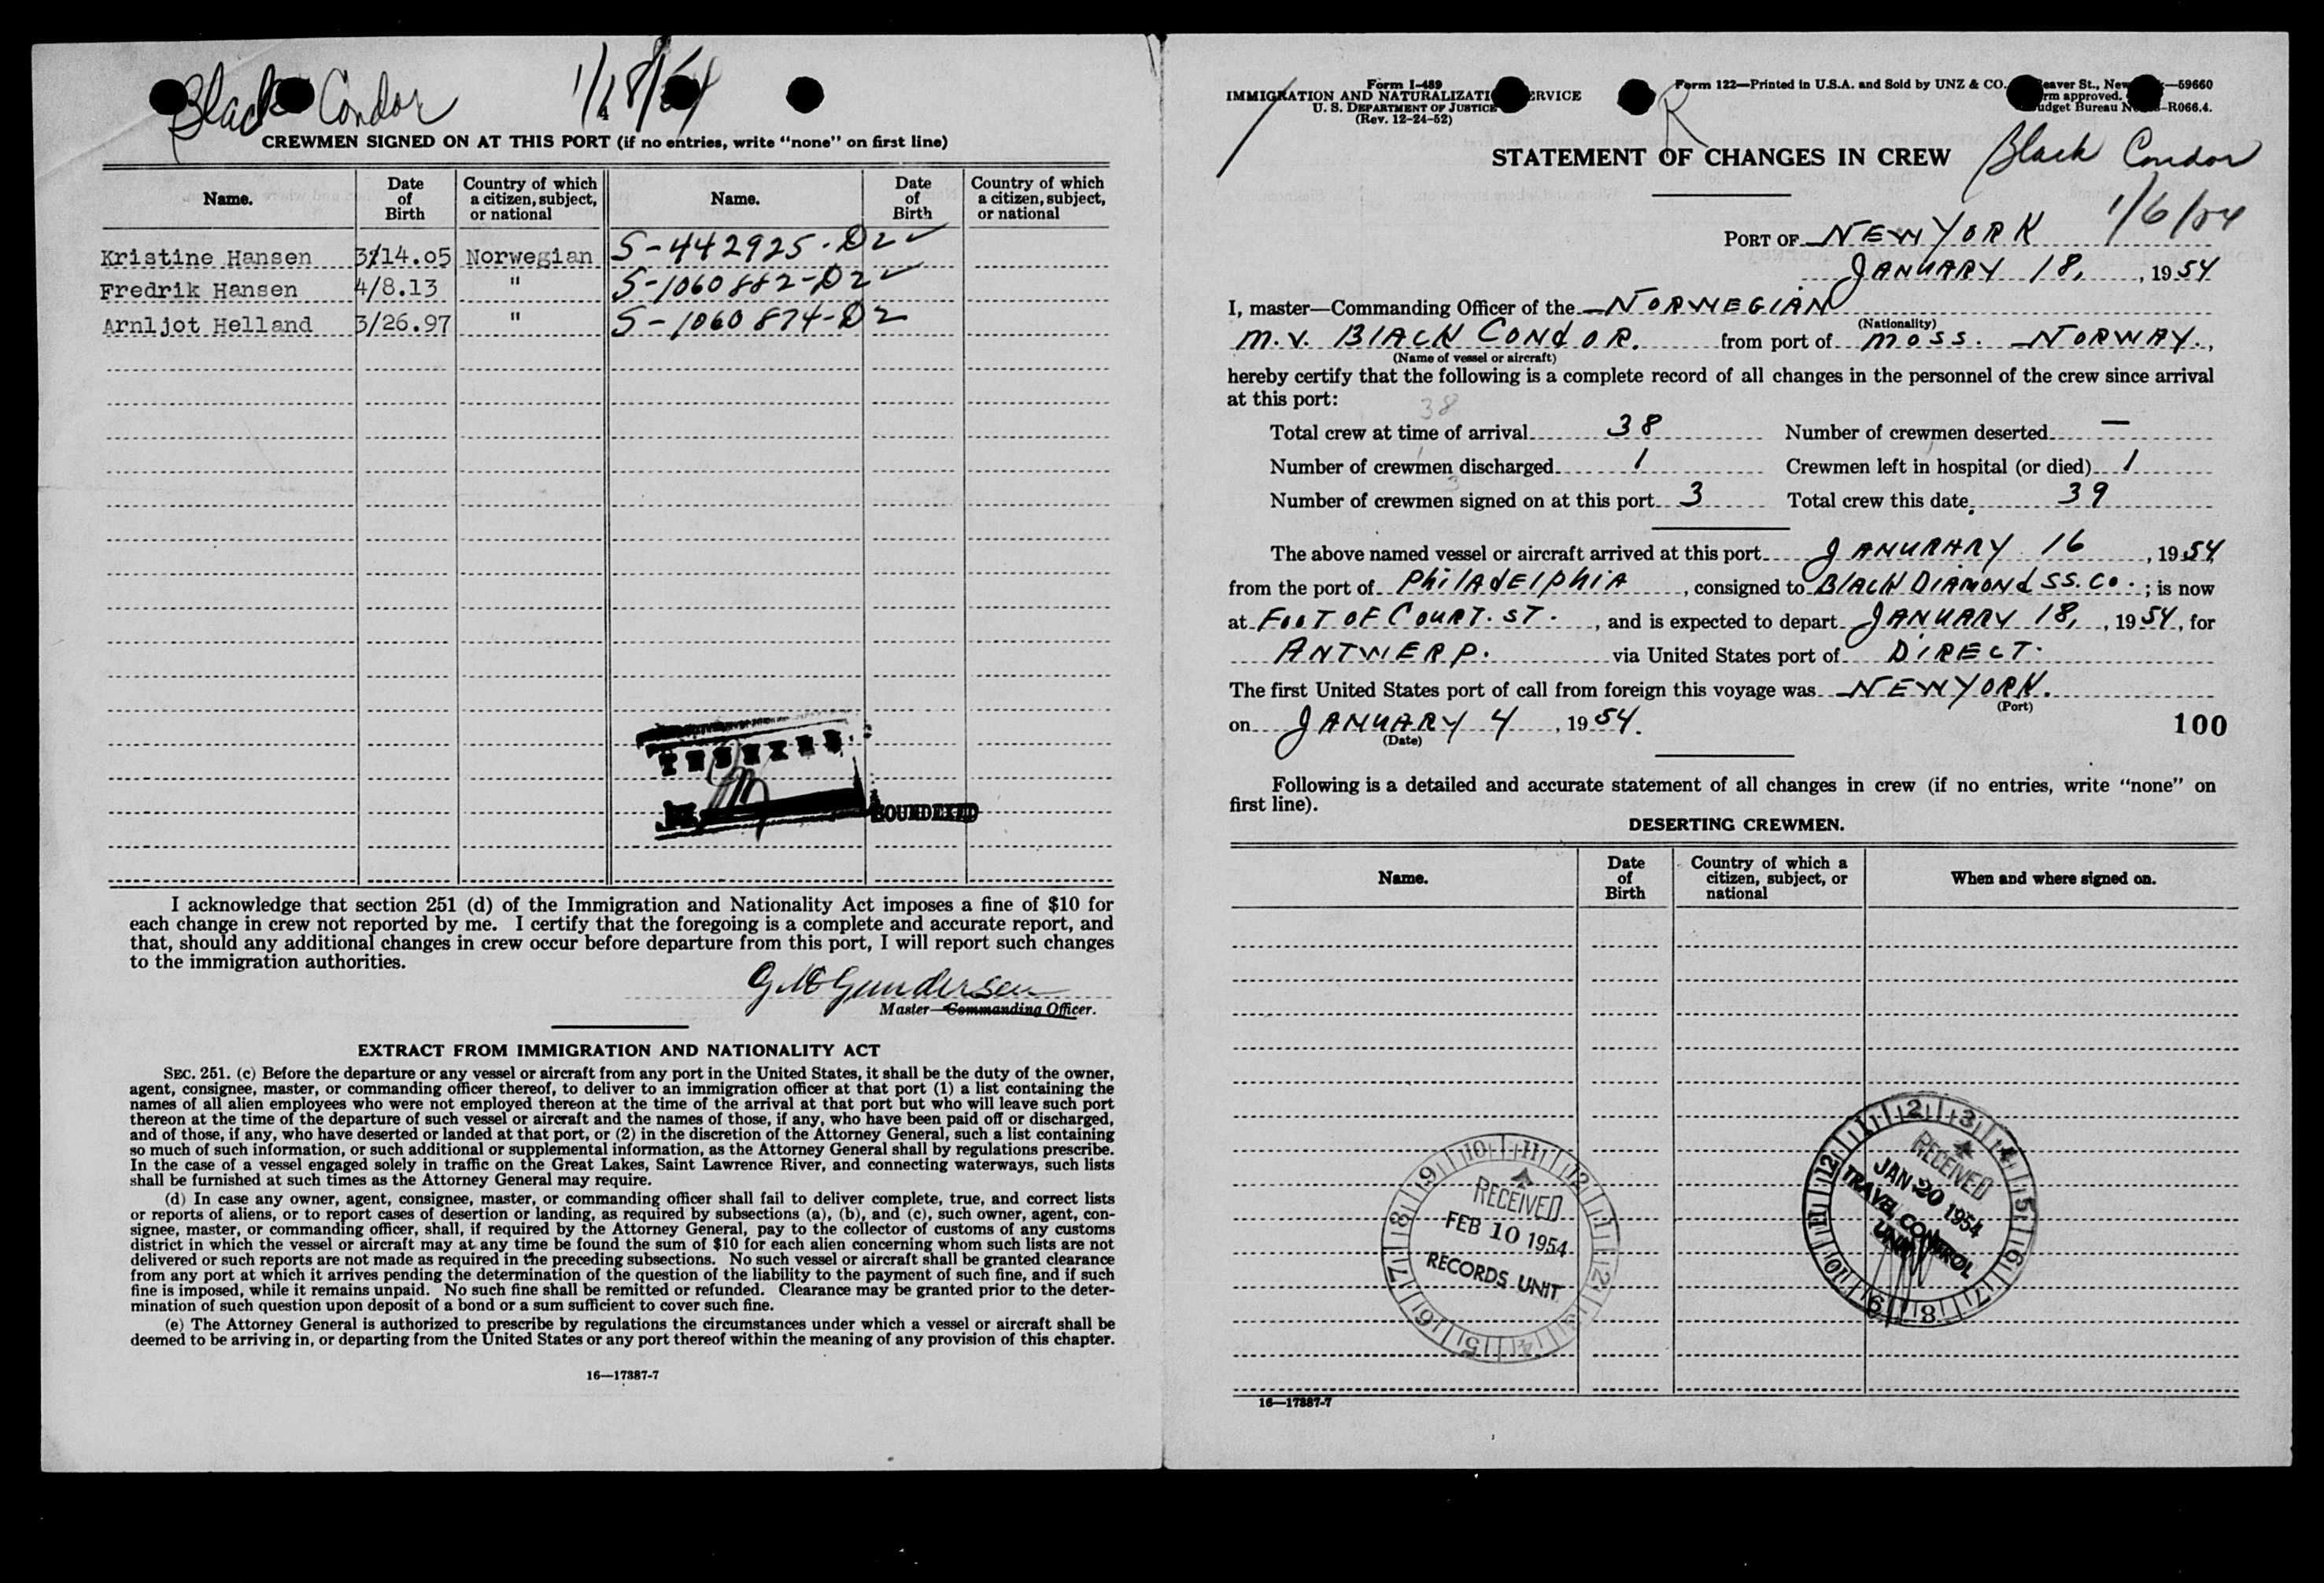 Black Condor 1/18/54
CREWMEN SIGNED ON AT THIS PORT (if no entries, write "none" on first line)
Name. Date of Birth Country of which a citizen, subject, or national Name. Date of Birth Country of which a citizen, subject, or national
Kristine Hansen 3/14.05 Norwegian S-442925-D2 ✓
Fredrik Hansen 4/8.13 " S-1060882-D2 ✓
Arnljot Helland 3/26.97 " S-1060874-D2
I acknowledge that section 251 (d) of the Immigration and Nationality Act imposes a fine of $10 for
each change in crew not reported by me. I certify that the foregoing is a complete and accurate report, and
that, should any additional changes in crew occur before departure from this port, I will report such changes
to the immigration authorities.
Gundersen
Master—Commanding Officer.
EXTRACT FROM IMMIGRATION AND NATIONALITY ACT
SEC. 251. (c) Before the departure or any vessel or aircraft from any port in the United States, it shall be the duty of the owner,
agent, consignee, master, or commanding officer thereof, to deliver to an immigration officer at that port (1) a list containing the
names of all alien employees who were not employed thereon at the time of the arrival at that port but who will leave such port
thereon at the time of the departure of such vessel or aircraft and the names of those, if any, who have been paid off or discharged,
and of those, if any, who have deserted or landed at that port, or (2) in the discretion of the Attorney General, such a list containing
so much of such information, or such additional or supplemental information, as the Attorney General shall by regulations prescribe.
In the case of a vessel engaged solely in traffic on the Great Lakes, Saint Lawrence River, and connecting waterways, such lists
shall be furnished at such times as the Attorney General may require.
(d) In case any owner, agent, consignee, master, or commanding officer shall fail to deliver complete, true, and correct lists
or reports of aliens, or to report cases of desertion or landing, as required by subsections (a), (b), and (c), such owner, agent, con-
signee, master, or commanding officer, shall, if required by the Attorney General, pay to the collector of customs of any customs
district in which the vessel or aircraft may at any time be found the sum of $10 for each alien concerning whom such lists are not
delivered or such reports are not made as required in the preceding subsections. No such vessel or aircraft shall be granted clearance
from any port at which it arrives pending the determination of the question of the liability to the payment of such fine, and if such
fine is imposed, while it remains unpaid. No such fine shall be remitted or refunded. Clearance may be granted prior to the deter-
mination of such question upon deposit of a bond or a sum sufficient to cover such fine.
(e) The Attorney General is authorized to prescribe by regulations the circumstances under which a vessel or aircraft shall be
deemed to be arriving in, or departing from the United States or any port thereof within the meaning of any provision of this chapter.
16—17387-7
Form I-489
IMMIGRATION AND NATURALIZATI ERVICE
U. S. DEPARTMENT OF JUSTICE
(Rev. 12-24-52)
Form 122—Printed in U.S.A. and Sold by UNZ & CO. eaver St., New —59660
rm approved.
udget Bureau N —R066.4.
R
STATEMENT OF CHANGES IN CREW
Black Condor
1/6/54
PORT OF NEW YORK
JANUARY 18, , 1954
I, master—Commanding Officer of the NORWEGIAN
(Nationality)
M.V. BLACK CONdOR. from port of MOSS. NORWAY.,
(Name of vessel or aircraft)
hereby certify that the following is a complete record of all changes in the personnel of the crew since arrival
at this port:
38
Total crew at time of arrival 38 Number of crewmen deserted —
Number of crewmen discharged 1 Crewmen left in hospital (or died) 1
3
Number of crewmen signed on at this port 3 Total crew this date 39
The above named vessel or aircraft arrived at this port JANURARY 16 , 1954
from the port of PhilAdElphiA , consigned to BlACK DIAMONd SS. CO. ; is now
at FOOT OF COURT. ST. , and is expected to depart JANUARY 18, , 1954, for
ANTWERP. via United States port of DIRECT.
The first United States port of call from foreign this voyage was NEW YORK.
(Port)
on JANUARY 4 , 1954.
(Date)
100
Following is a detailed and accurate statement of all changes in crew (if no entries, write "none" on
first line).
DESERTING CREWMEN.
Name. Date of Birth Country of which a citizen, subject, or national When and where signed on.
RECEIVED
FEB 10 1954
RECORDS UNIT
RECEIVED
JAN 20 1954
TRAVEL CONTROL
UNIT
16—17387-7